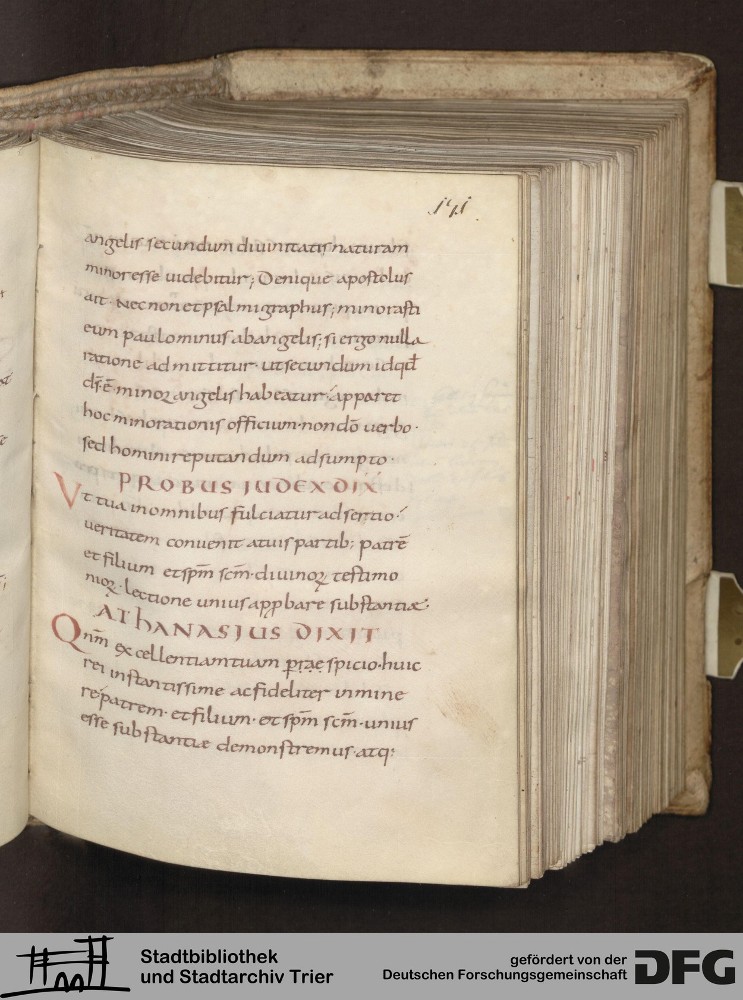 191
angelis secundum diuinitatis naturam
minor esse uidebitur; Denique apostolus
ait. Nec non et psalmigraphus; minorasti
eum paulo minus ab angelis; si ergo nulla
ratione admittitur. ut secundum id qđ
dś. ē minor angelis habeatur. apparet
hoc minorationis officium. non dō uerbo.
sed homini reputandum adsumpto.
PROBUS IUDEX DIX
Vt tua in omnibus fulciatur adsertio.
ueritatem conuenit a tuis partib; patrē
et filium et spm̄ scm̄. diuinoꝝ testimo
nioꝝ. lectione unius app̱bare substantiæ.
AThANASIUS DIXIT
Qnm̄ excellentiam tuam prae spicio. huic
rei instantissime ac fideliter inmine
re. patrem. et filium. et spm̄ scm̄. unius
esse substantiæ demonstremus. atq;
Stadtbibliothek
und Stadtarchiv Trier
gefördert von der
Deutschen Forschungsgemeinschaft
DFG